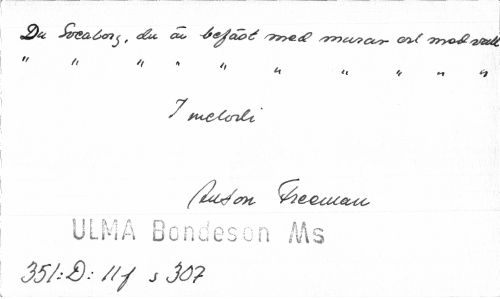 Du Sveaborg, du är befäst med murar och med vall
" " " " " " " " " "
1 melodi
Anton Freeman
ULMA Bondeson Ms
351:D:11f s 307